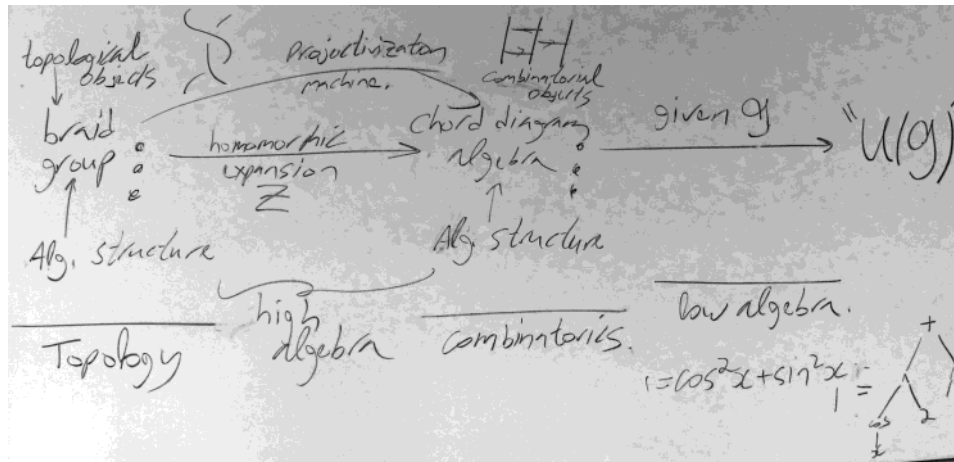 topological
objects
projectivization
machine.
combinatorial
objects
braid
group
homomorphic
expansion
Z
Chord diagram
algebra
given g
"U(g)
Alg. structure
Alg. structure
Topology
high
algebra
combinatorics.
low algebra.
1=cos²x+sin²x
1 =
+
cos
x
2